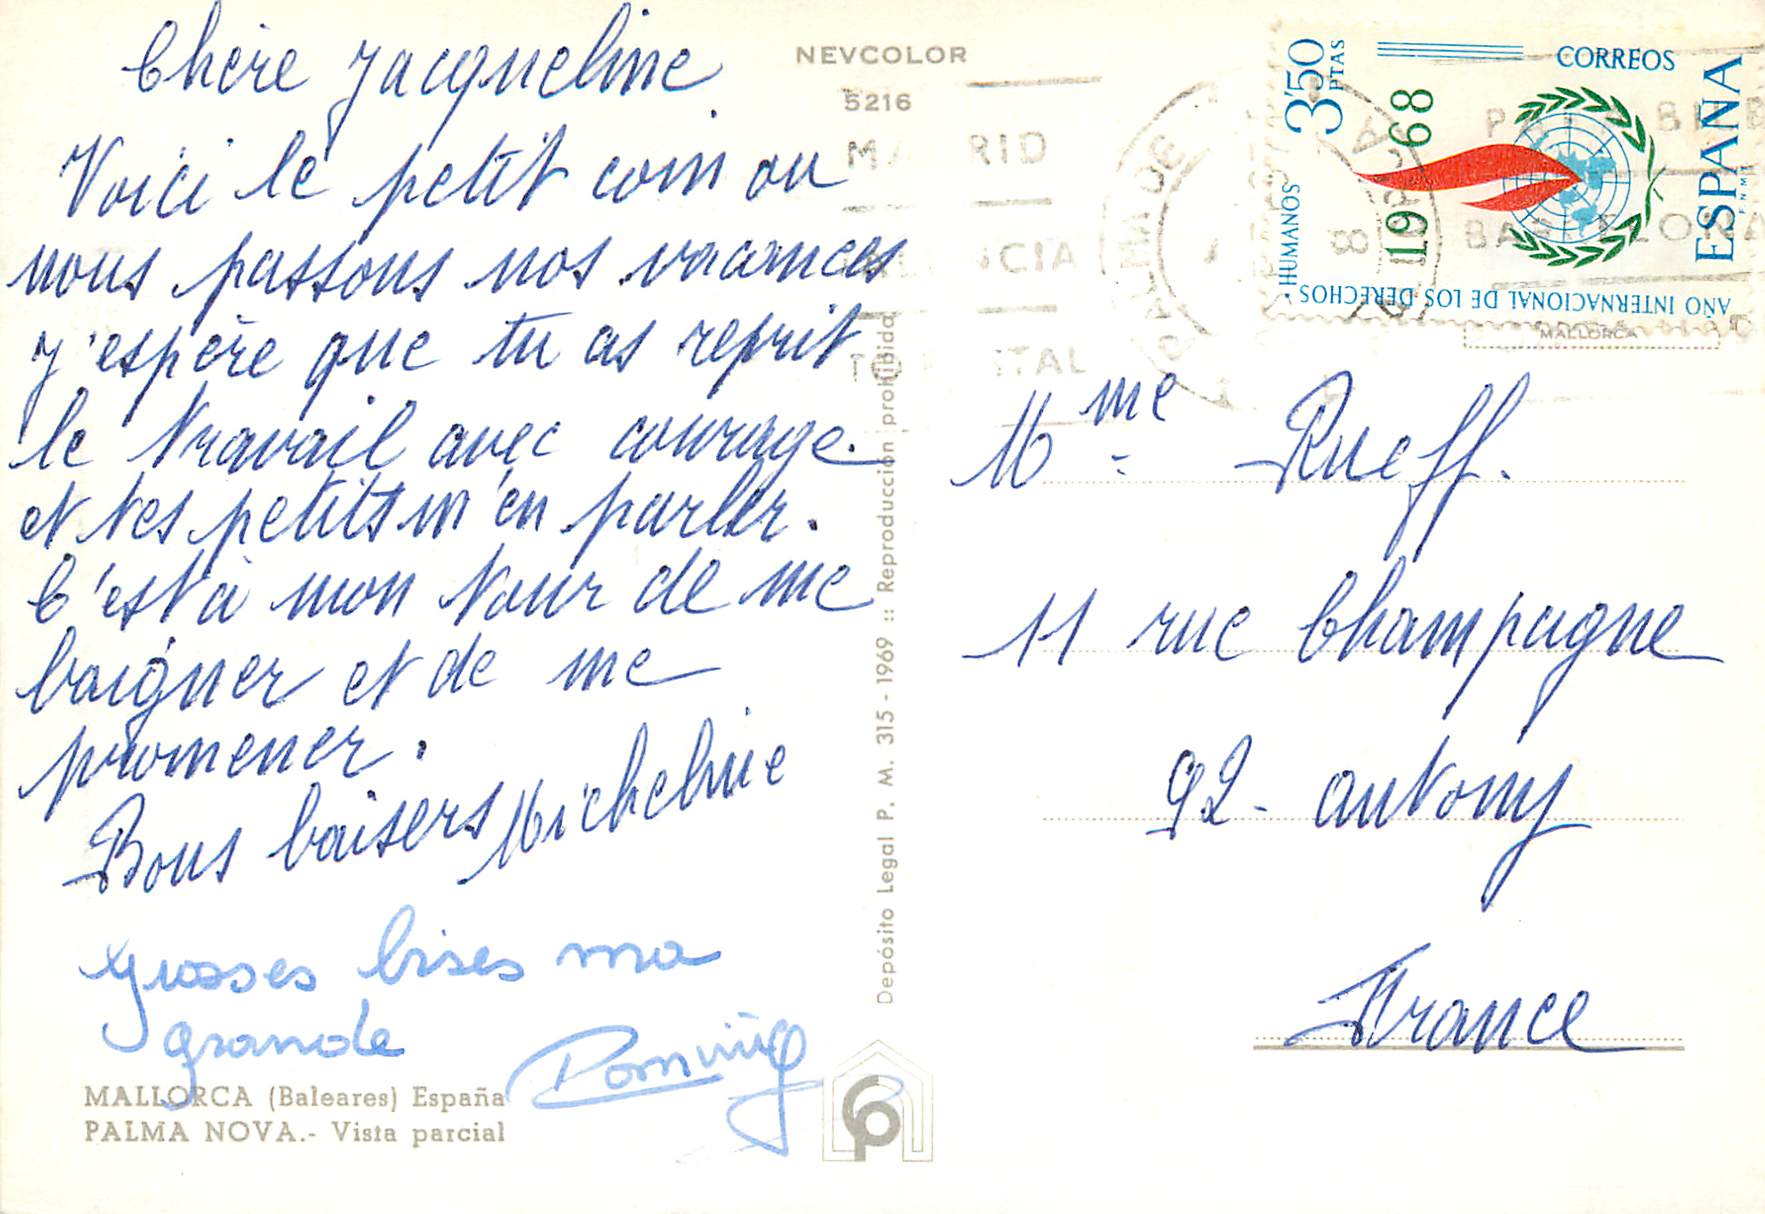 Chère Jacqueline
Voici le petit coin ou
nous passons nos vacances
J'espère que tu as reprit
le travail avec courage.
et tes petits m'en parler.
C'est à mon tour de me
baigner et de me
promener.
Bons baisers Micheline
Grosses bises ma
grande
MALLORCA (Baleares) España
PALMA NOVA.- Vista parcial
NEVCOLOR
5216
Depósito Legal P. M. 315 - 1969 :: Reproducción prohibida
3'50 PTAS
CORREOS
1968
ESPAÑA
F.N.M.T.
AÑO INTERNACIONAL DE LOS DERECHOS HUMANOS
MALLORCA
Mme Rueff.
11 rue Champagne
92 - antony
France